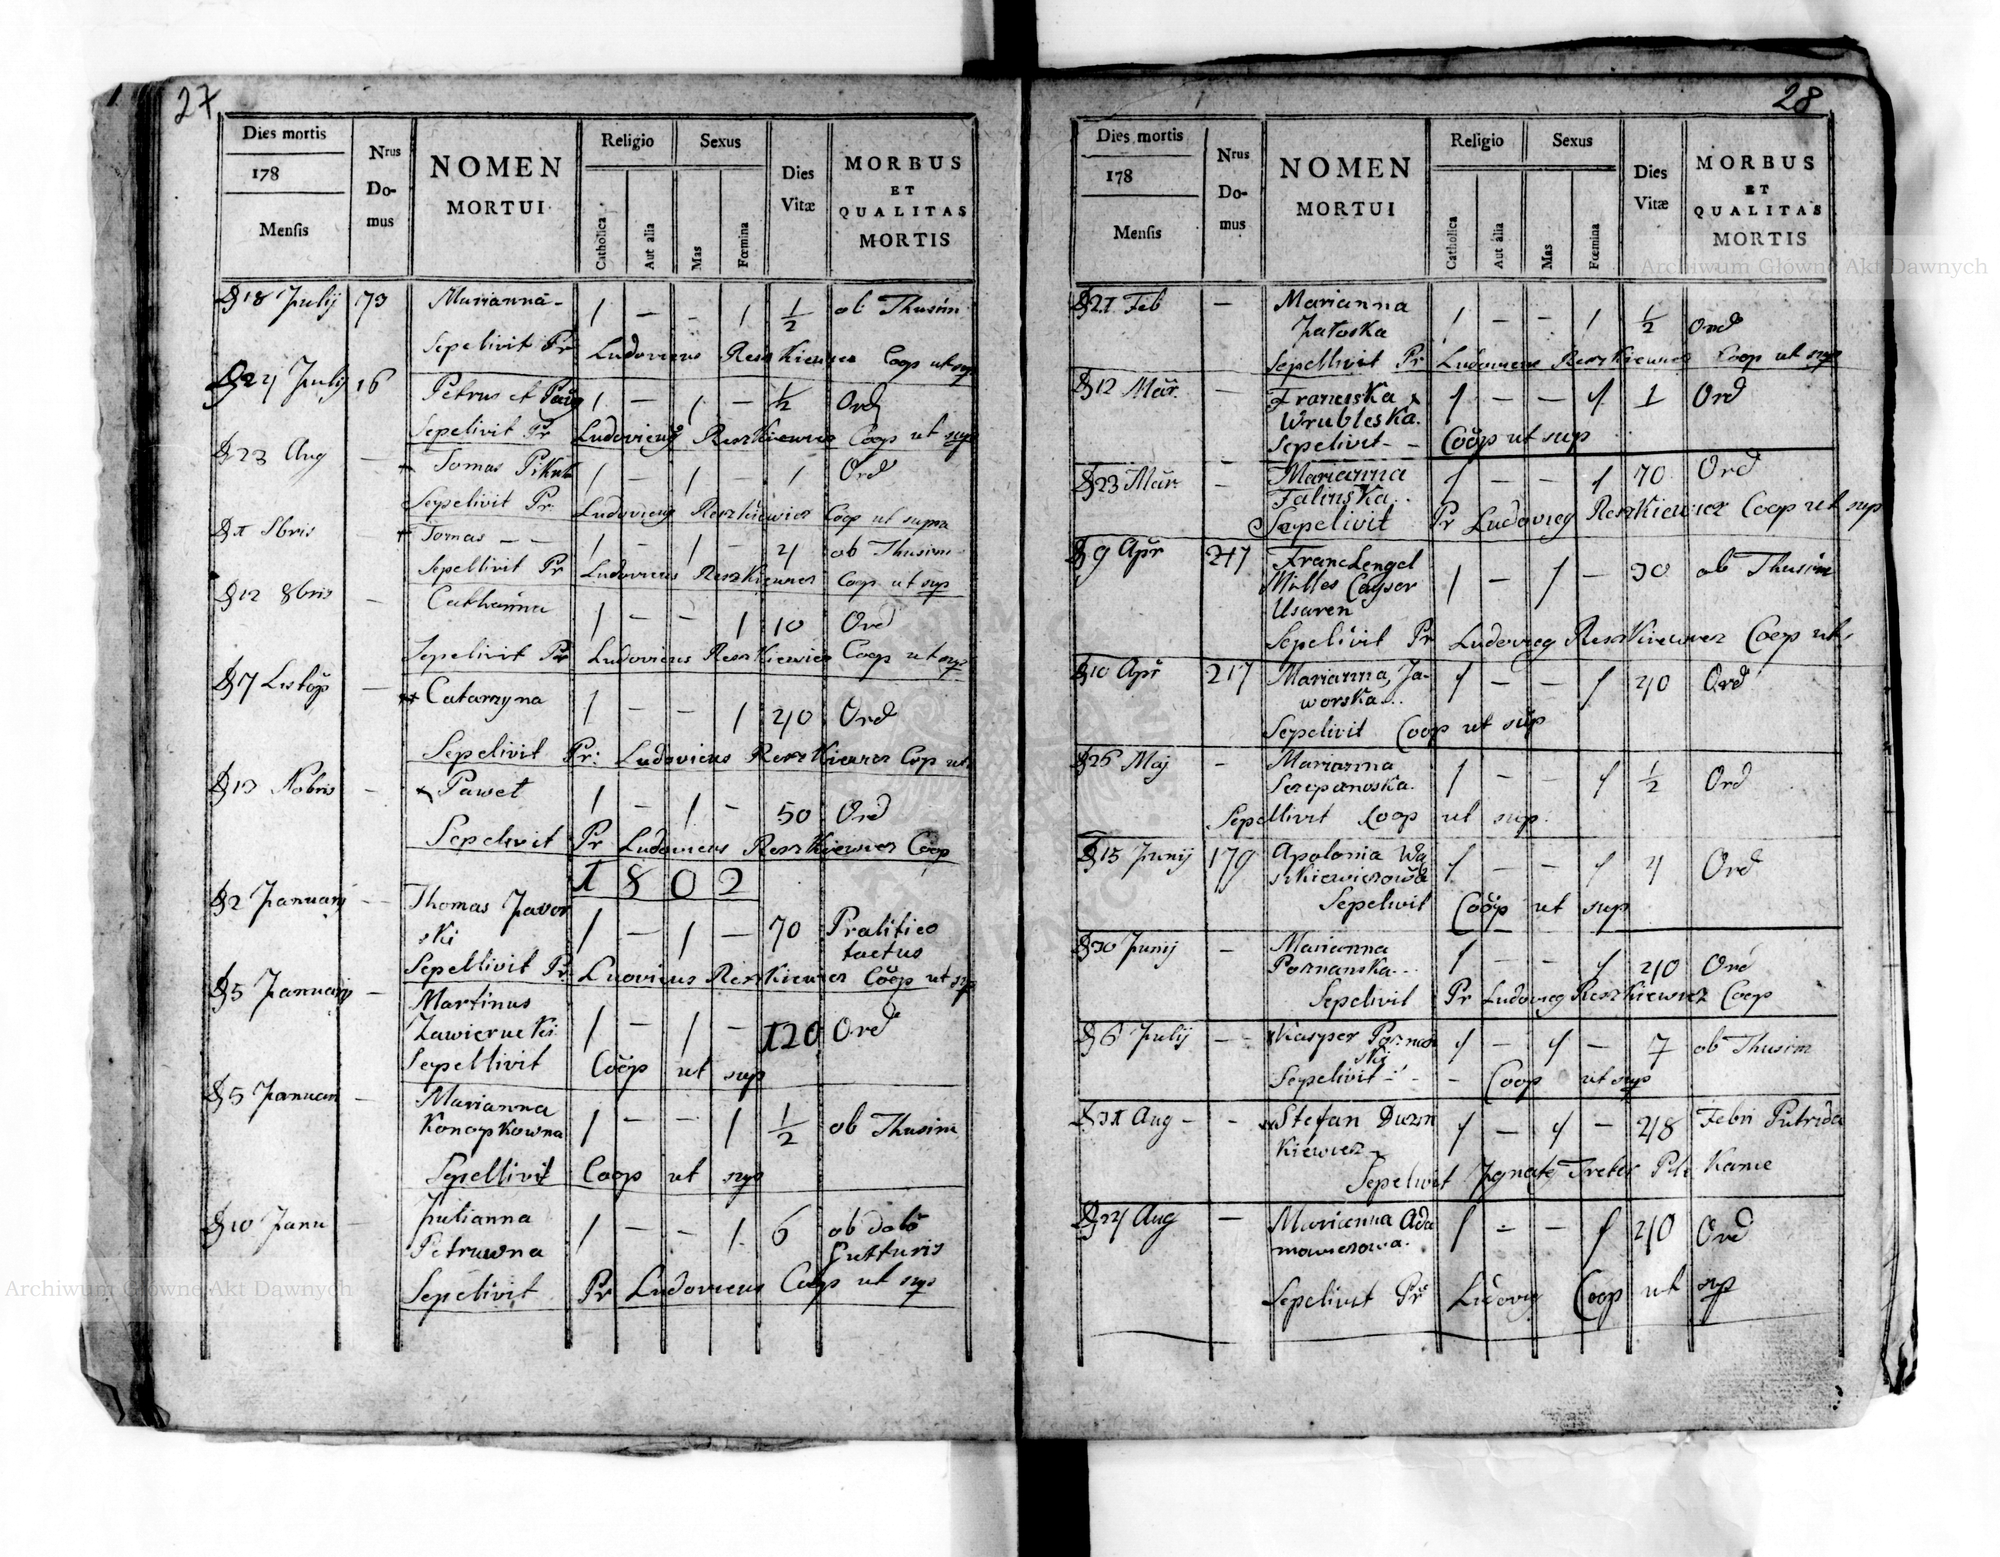 27
Dies mortis
178
Mensis
Nrus
Do-
mus
NOMEN
MORTUI
Religio
Catholica
Aut alia
Sexus
Mas
Fœmina
Dies
Vitæ
MORBUS
ET
QUALITAS
MORTIS
18 Julij 73 Marianna - 1 - - 1 1/2 ob Thusim
Sepelivit Pr Ludovicus Reszkiewicz Coop ut sup
24 Julij 16 Petrus et 1 - 1 - 1/2 Ord
Sepelivit Pr Ludovicus Reszkiewicz Coop ut sup
23 Aug - Tomas Pikul 1 - 1 - 1 Ord
Sepelivit Pr Ludovicus Reszkiewicz Coop ut supra
1 8bris - Tomas - - 1 - 1 - 4 ob Thusim
Sepellivit Pr Ludovicus Reszkiewicz Coop ut sup
12 8bris - Catharina 1 - - 1 10 Ord
Sepelivit Pr Ludovicus Reszkiewicz Coop ut sup
7 Listop - Catarzyna 1 - - 1 40 Ord
Sepelivit Pr: Ludovicus Reszkiewicz Cop ut
13 Nobris - Paweł 1 - 1 - 50 Ord
Sepelivit Pr Ludovicus Reszkiewicz Coop
1802
2 Januarij - - Thomas Javor
ski 1 - 1 - 70 Pralitico
tactus
Sepellivit Pr. Luovicus Reszkiewicz Coop ut sup
5 Januarij - Martinus
Zawierucki 1 - 1 - 120 Ord
Sepellivit Coop ut sup
5 Januari - Marianna
Konopkowna 1 - - 1 1/2 ob Thusim
Sepellivit Coop ut sup
10 Janu - Julianna
Petruwna 1 - - 1 6 ob dolo
Gutturis
Sepelivit Pr Ludovicus Coop ut sup
28
Dies mortis
178
Mensis
Nrus
Do-
mus
NOMEN
MORTUI
Religio
Catholica
Aut alia
Sexus
Mas
Fœmina
Dies
Vitæ
MORBUS
ET
QUALITAS
MORTIS
21 Feb - Marianna
Jatoska 1 - - 1 1/2 Ord
Sepellivit Pr Ludovicus Reszkiewicz Coop ut sup
12 Mar. - Franciska
Wrubleska. 1 - - 1 1 Ord
Sepelivit - - Coop ut sup
23 Mar - Marianna
Falinska.. 1 - - 1 70 Ord
Sepelivit Pr Ludovicg Reszkiewicz Coop ut sup
9 Apr 217 Franc Lengel
Milles Cayser
Usaren 1 - 1 - 30 ob Thusim
Sepelivit Pr Ludovicg Reszkiewicz Coop ut
10 Apr 217 Marianna Ja-
worska... 1 - - 1 40 Ord
Sepelivit Coop ut sup
26 Maj - Marianna
Sczepanoska. 1 - - 1 1/2 Ord
Sepellivit Coop ut sup.
15 Junij 179 Apolonia Wa
szkiewiczowa 1 - - 1 4 Ord
Sepelivit Coop ut sup
30 Junij - Marianna
Poznanska... 1 - - 1 40 Ord
Sepelivit Pr Ludovicg Reszkiewicz Coop
6 Julij - - Kasper Poznan
ski 1 - 1 - 7 ob Thusim
Sepelivit - - - Coop ut sup
31 Aug - - Stefan
kiewicz 1 - 1 - 48 Febri Putrida
Sepelivit Ignatg Kanc
24 Aug - Marianna Ada
mowiczowa. 1 - - 1 40 Ord
Sepelivit Pr Ludovig Coop ut sup
Archiwum Główne Akt Dawnych
Archiwum Główne Akt Dawnych